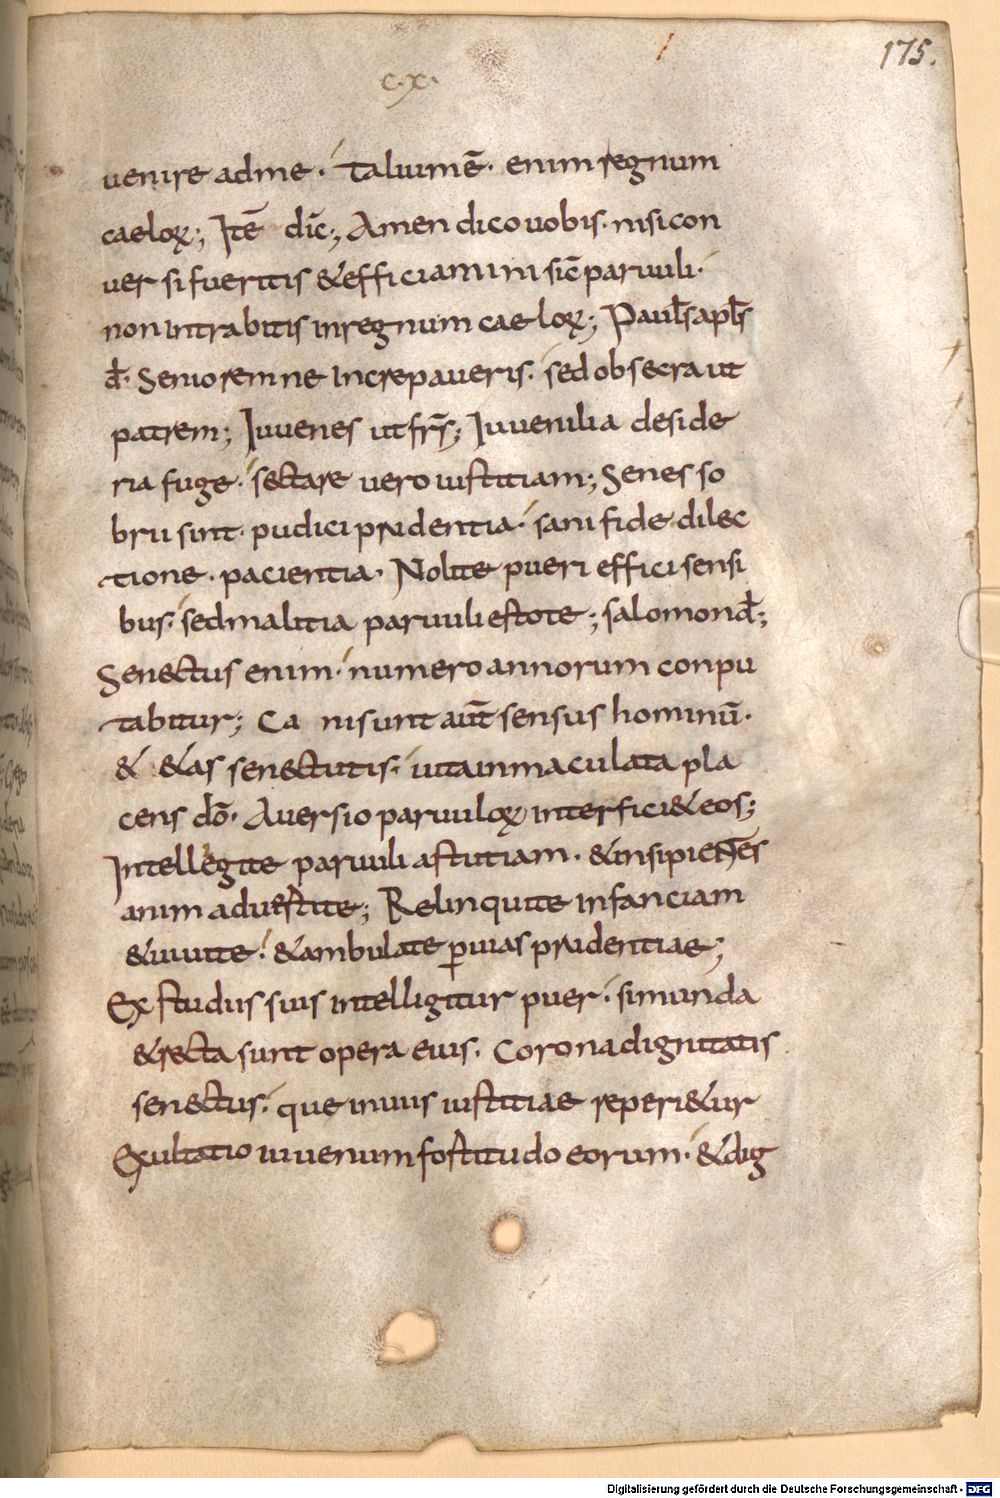 175.
c.x.
uenire adme · Taluimē · enim regnum
caeloꝝ; Itē dic̄; Amen dico uobis · nisi con
uer si fueritis &efficiamini sic̄ paruuli ·
non intrabitis inregnum caeloꝝ; Paul̄s apl̄s
d̄ · Seniorem ne increpaueris · sed obsecra ut
patrem; Iuuenes ut fr̄s; Iuuenilia deside
ria fuge · sectare uero iustitiam; Senes so
brii sint · pudici prudentia · sani fide · dilec
tione · pacientia · Nolite pueri effici sensi
bus · sedmalitia paruuli estote; salomon d̄;
Senectus enim · numero annorum conpu
tabitur; Ca nisunt aūt sensus hominū ·
& &as senectutis · uita inmaculata pla
cens dō · Auersio paruuloꝝ interfici&eos;
Intellegite paruuli astutiam · &insipientes
animaduertite; Relinquite infanciam
&uiuite · &ambulate ꝑuias prudentiae;
Ex studiis suis intelligitur puer · simunda
&recta sunt opera eius · Corona dignitatis
senectus · que inuiis iustitiae reperi&ur
Exultatio iuuenum fortitudo eorum · &dig
Digitalisierung gefördert durch die Deutsche Forschungsgemeinschaft - DFG